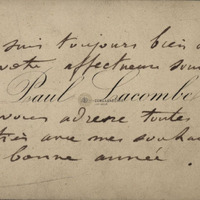 suis toujours bien
votre affectueux
Paul Lacombe
vous adresse toutes
avec mes souhaits
bonne année.